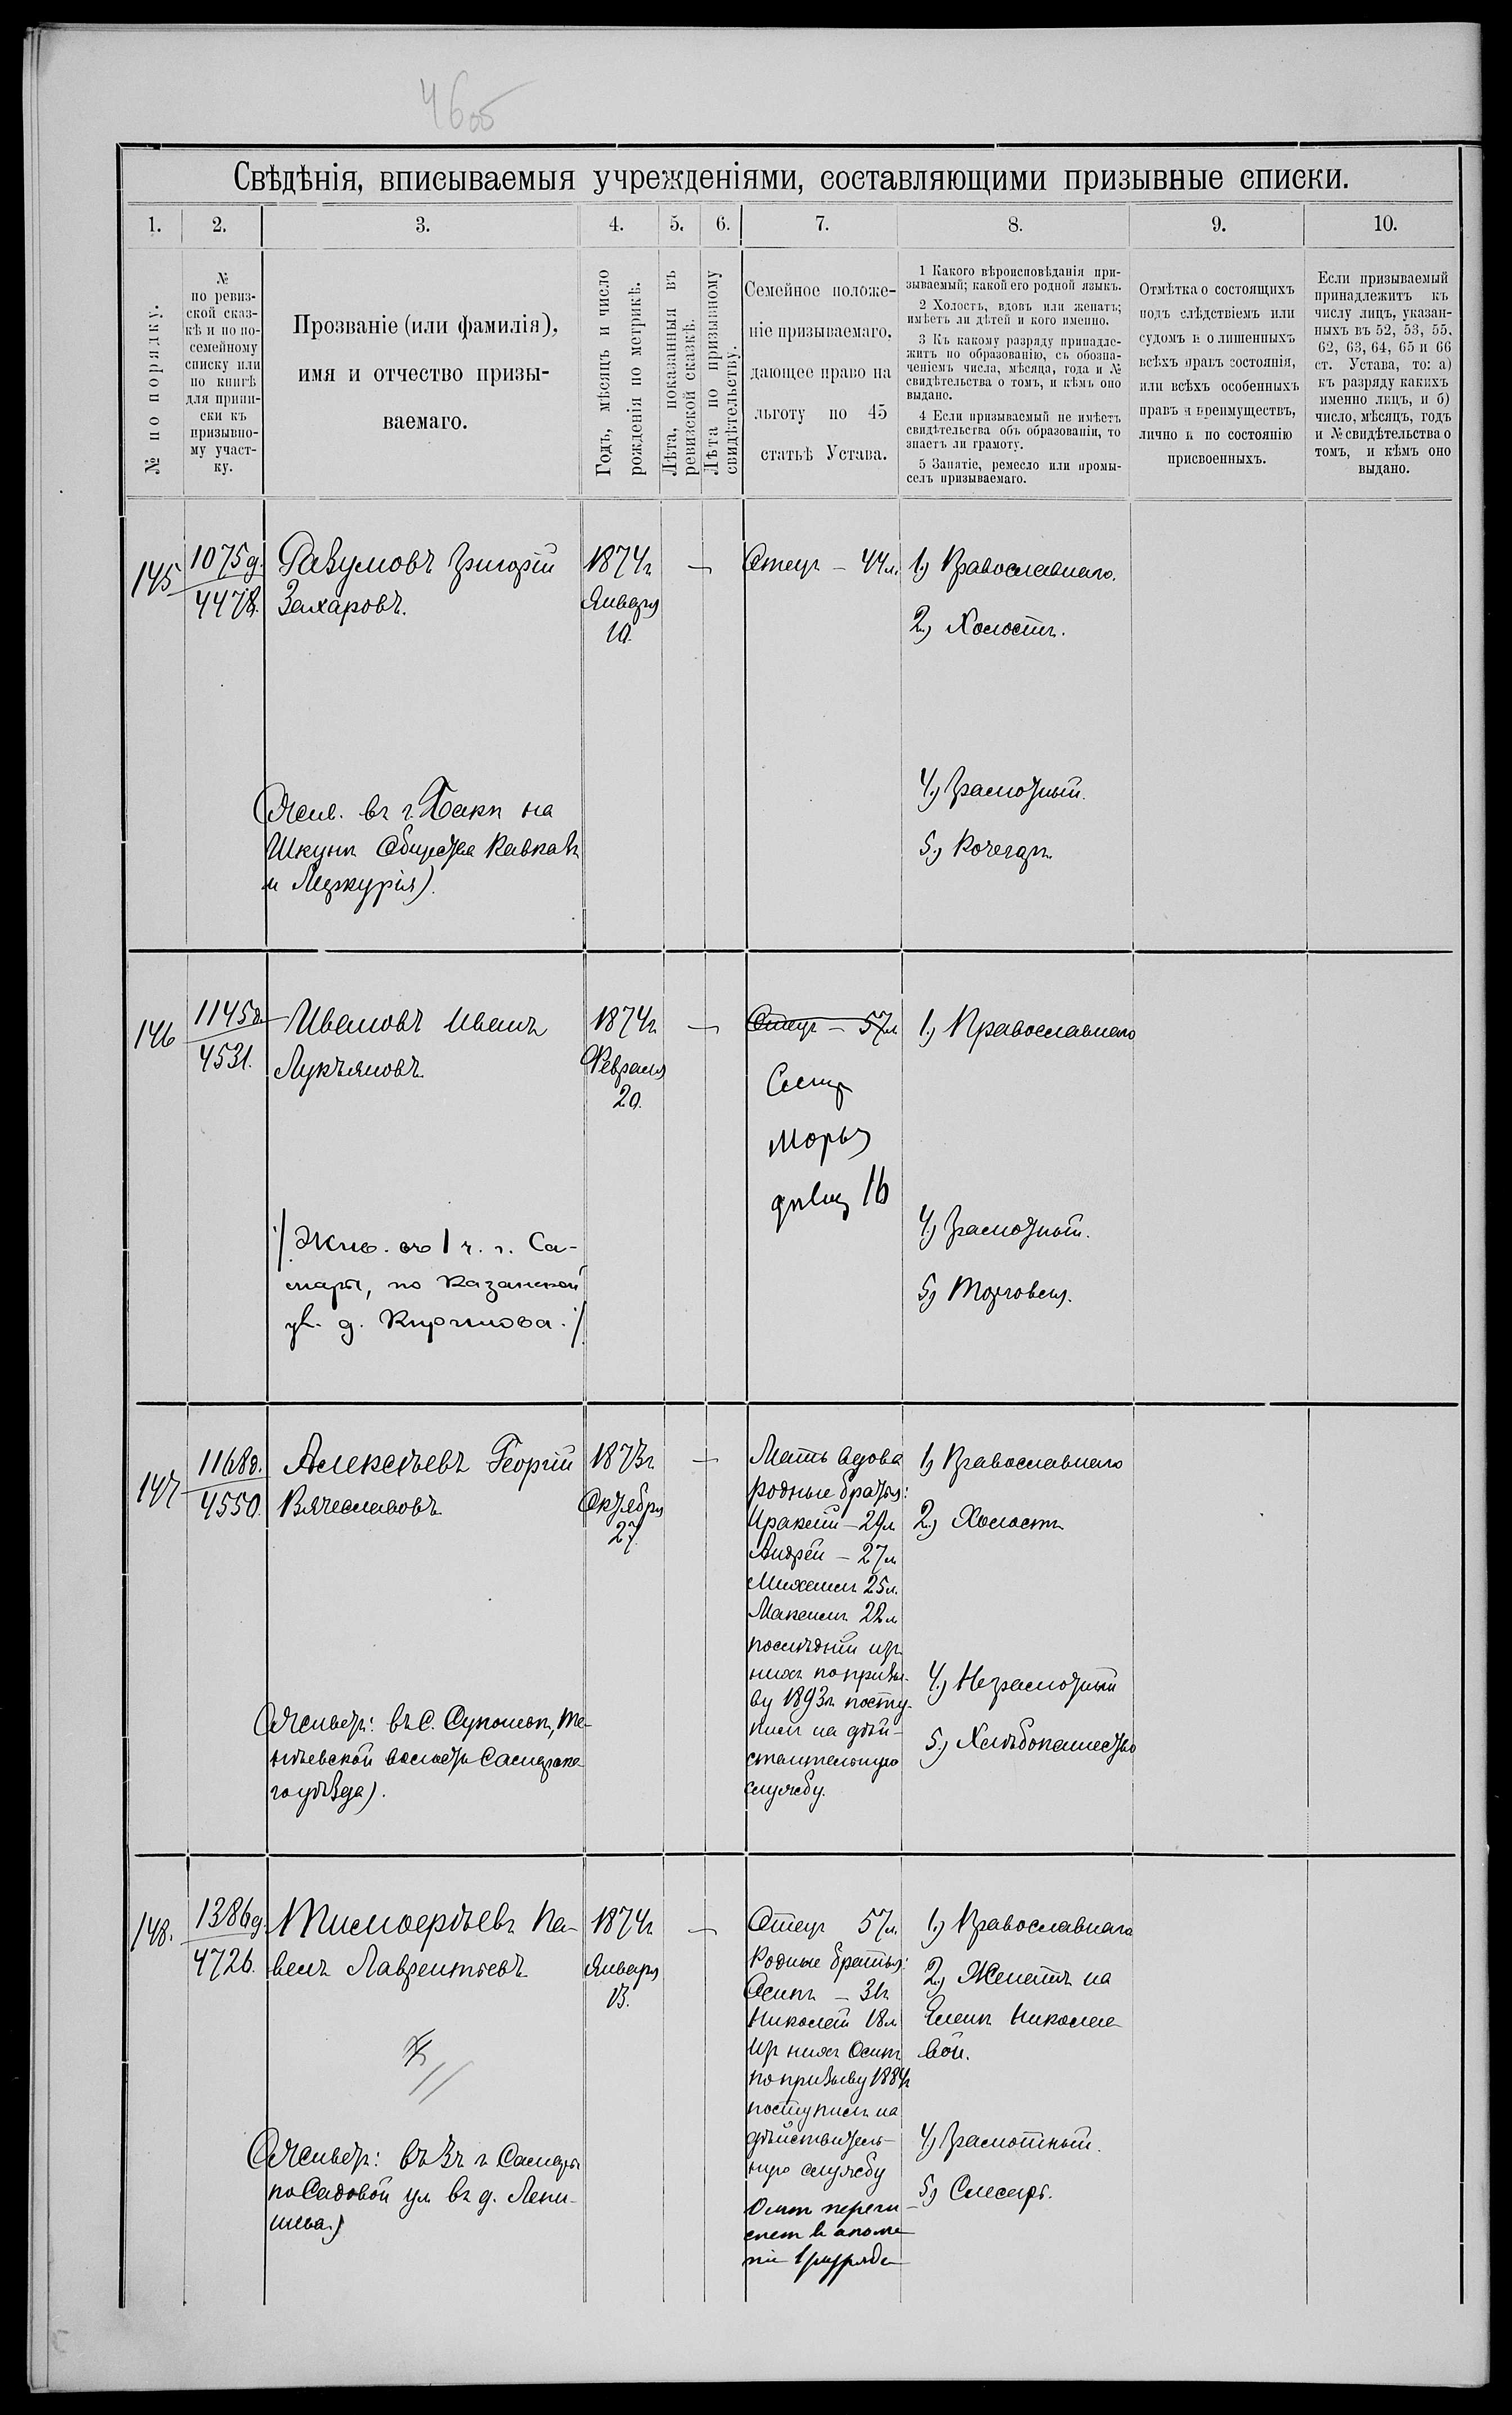 4605
Свѣдѣнія, вписываемыя учрежденіями, составляющими призывные списки.
1. 2. 3. 4. 5. 6. 7. 8. 9. 10.
№ по порядку.
№
по ревиз-
ской сказ-
кѣ и по по-
семейному
списку или
по книгѣ
для припи-
ски къ
призывно-
му участ-
ку.
Прозваніе (или фамилія),
имя и отчество призы-
ваемаго.
Годъ, мѣсяцъ и число
рожденія по метрикѣ.
Лѣта, показанныя въ
ревизской сказкѣ.
Лѣта по призывному
свидѣтельству.
Семейное положе-
ніе призываемаго,
дающее право на
льготу по 45
статьѣ Устава.
1 Какого вѣроисповѣданія при-
зываемый; какой его родной языкъ.
2 Холостъ, вдовъ или женатъ;
имѣетъ ли дѣтей и кого именно.
3 Къ какому разряду принадле-
житъ по образованію, съ обозна-
ченіемъ числа, мѣсяца, года и №
свидѣтельства о томъ, и кѣмъ оно
выдано.
4 Если призываемый не имѣетъ
свидѣтельства объ образованіи, то
знаетъ ли грамоту.
5 Занятіе, ремесло или промы-
селъ призываемаго.
Отмѣтка о состоящихъ
подъ слѣдствіемъ или
судомъ и о лишенныхъ
всѣхъ правъ состоянія,
или всѣхъ особенныхъ
правъ и преимуществъ,
лично и по состоянію
присвоенныхъ.
Если призываемый
принадлежитъ къ
числу лицъ, указан-
ныхъ въ 52, 53, 55,
62, 63, 64, 65 и 66
ст. Устава, то: а)
къ разряду какихъ
именно лицъ, и б)
число, мѣсяцъ, годъ
и № свидѣтельства о
томъ, и кѣмъ оно
выдано.
145
1075д.
4478.
Разумовъ Григорій
Захаровъ.
(Жив. въ г. Баку на
Шкунѣ Общества Кавказъ
и Меркурія).
1874г
Января
10.
—
Отецъ — 44л.
1.) Православнаго.
2.) Холостъ.
4.) Грамотный.
5.) Кочегаръ.
146
1145д.
4531.
Ивановъ Иванъ
Лукьяновъ.
/Жив. во 1 ч. г. Са-
мары, по Казанской
ул. д. Кирилова./
1874г
Февраля
20.
—
Отецъ — 57л
Сестр
Марья
дѣвиц 16
1.) Православнаго
4.) Грамотный.
5) Торговля.
147
1168д.
4550.
Алексѣевъ Георгій
Вячеславовъ
(Жительств: въ С. ...
... волости Самарска-
го уѣзда).
1873г
Октября
27.
—
Мать вдова
родные братья:
Ираклій — 29л
Андрей — 27л
Михаилъ 25л.
Максимъ 22л
послѣдній изъ
нихъ по призы-
ву 1893г посту-
пилъ на дѣй-
ствительную
службу.
1) Православнаго
2.) Холостъ
4.) Неграмотный
5.) Хлѣбопашество
148.
1386д.
4726.
Тимофеевъ Па-
велъ Лаврентьевъ
(Жительств: въ 3ч г. Самары
по Садовой ул. въ д. ...)
1874г
Января
13.
—
Отецъ 57л.
Родные братья:
Осипъ — 31г
Николай 18л
Изъ нихъ Осипъ
по призыву 1884г
поступилъ на
дѣйствитель-
ную службу
Осипъ перечи-
сленъ въ ополче
ніе 1 разряда
1.) Православнаго
2.) Женатъ на
Еленѣ Николае-
вой.
4.) Грамотный.
5) Слесарь.